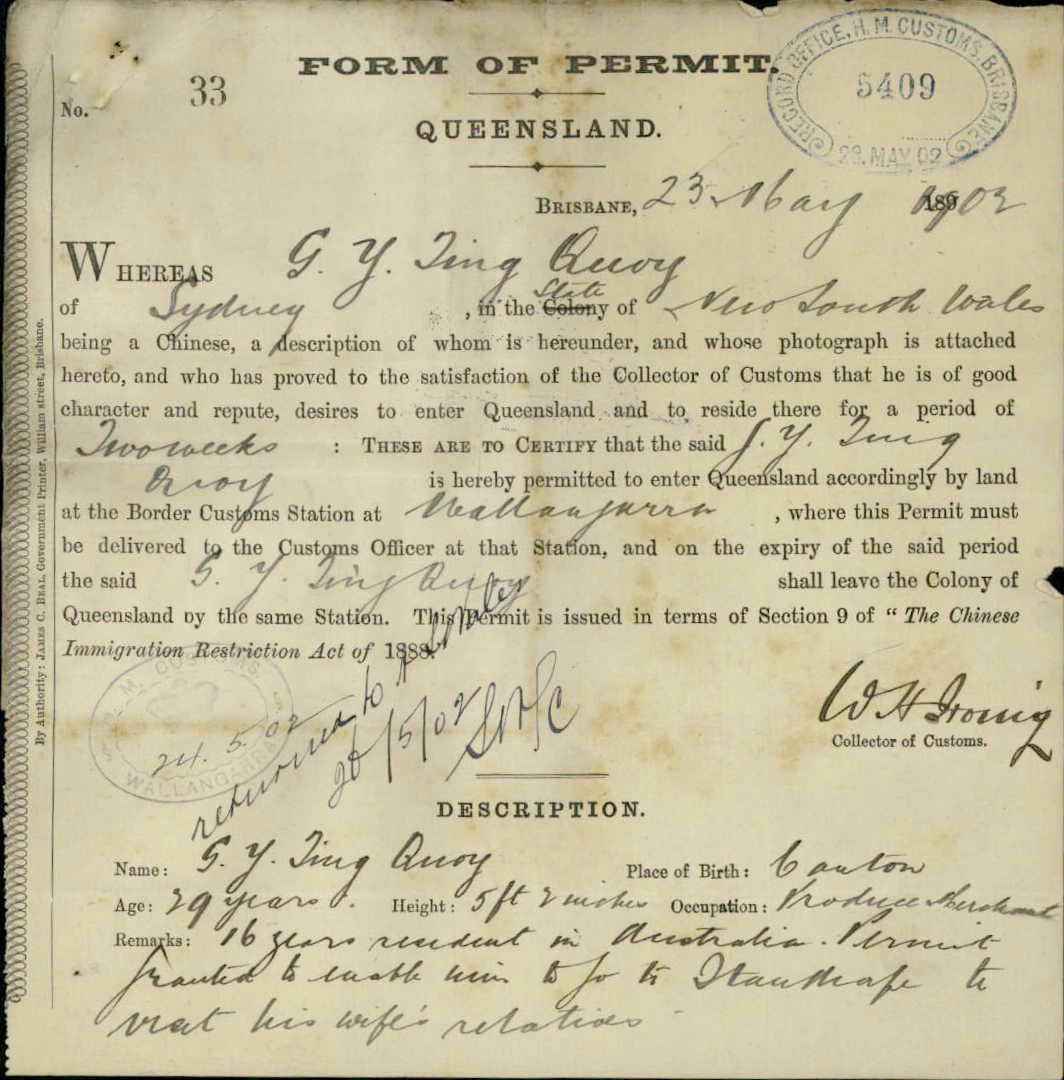 FORM OF PERMIT.
No. 33
QUEENSLAND.
RECORD OFFICE, H. M. CUSTOMS, BRISBANE
5409
23. MAY 02
BRISBANE, 23 May 1902
WHEREAS G. Y. Ting Quoy
of Sydney, in the Colony State of New South Wales
being a Chinese, a description of whom is hereunder, and whose photograph is attached
hereto, and who has proved to the satisfaction of the Collector of Customs that he is of good
character and repute, desires to enter Queensland and to reside there for a period of
Two weeks : THESE ARE TO CERTIFY that the said G. Y. Ting
Quoy is hereby permitted to enter Queensland accordingly by land
at the Border Customs Station at Wallangarra, where this Permit must
be delivered to the Customs Officer at that Station, and on the expiry of the said period
the said G. Y. Ting Quoy shall leave the Colony of
Queensland by the same Station. This Permit is issued in terms of Section 9 of "The Chinese
Immigration Restriction Act of 1888."
H. M. CUSTOMS
24. 5. 02
WALLANGARRA
returned to
26/5/02
W H Irving
Collector of Customs.
DESCRIPTION.
Name: G. Y. Ting Quoy Place of Birth: Canton
Age: 29 years. Height: 5 ft 2 inches Occupation: Produce Merchant
Remarks: 16 years resident in Australia. Permit
Granted to enable him to go to Stanthorpe to
visit his wife's relations
By Authority: JAMES C. BEAL, Government Printer, William street, Brisbane.